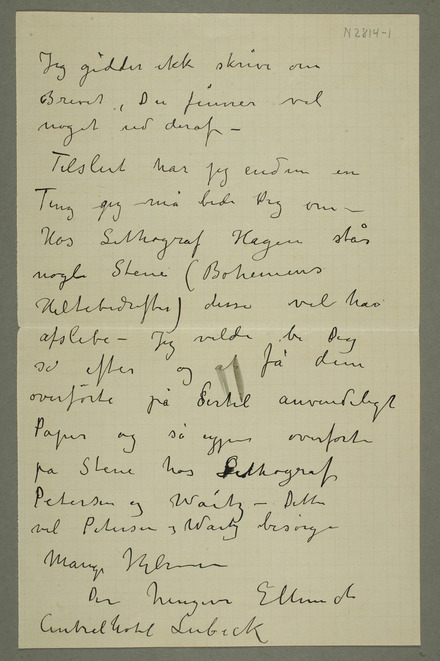 N 2814-1
Jeg gidder ikk skrive om
Brevet, Du finner vel
noget ud deraf –
Tilslut har jeg endnu en
Ting jeg må bede Dig om –
Hos Lithograf Hagen står
nogle Stene (Bohemens
Heltebedrifter) disse vil han
afslibe – Jeg vilde be Dig
se efter og få dem
overførte på dertil anvendeligt
Papir og så igjen overførte
på Stene hos Lithograf
Petersen og Waitz – Dette
vil Petersen og Waitz besørge
Mange Hilsener
Din hengivne EMunch
Centralhotel Lübeck